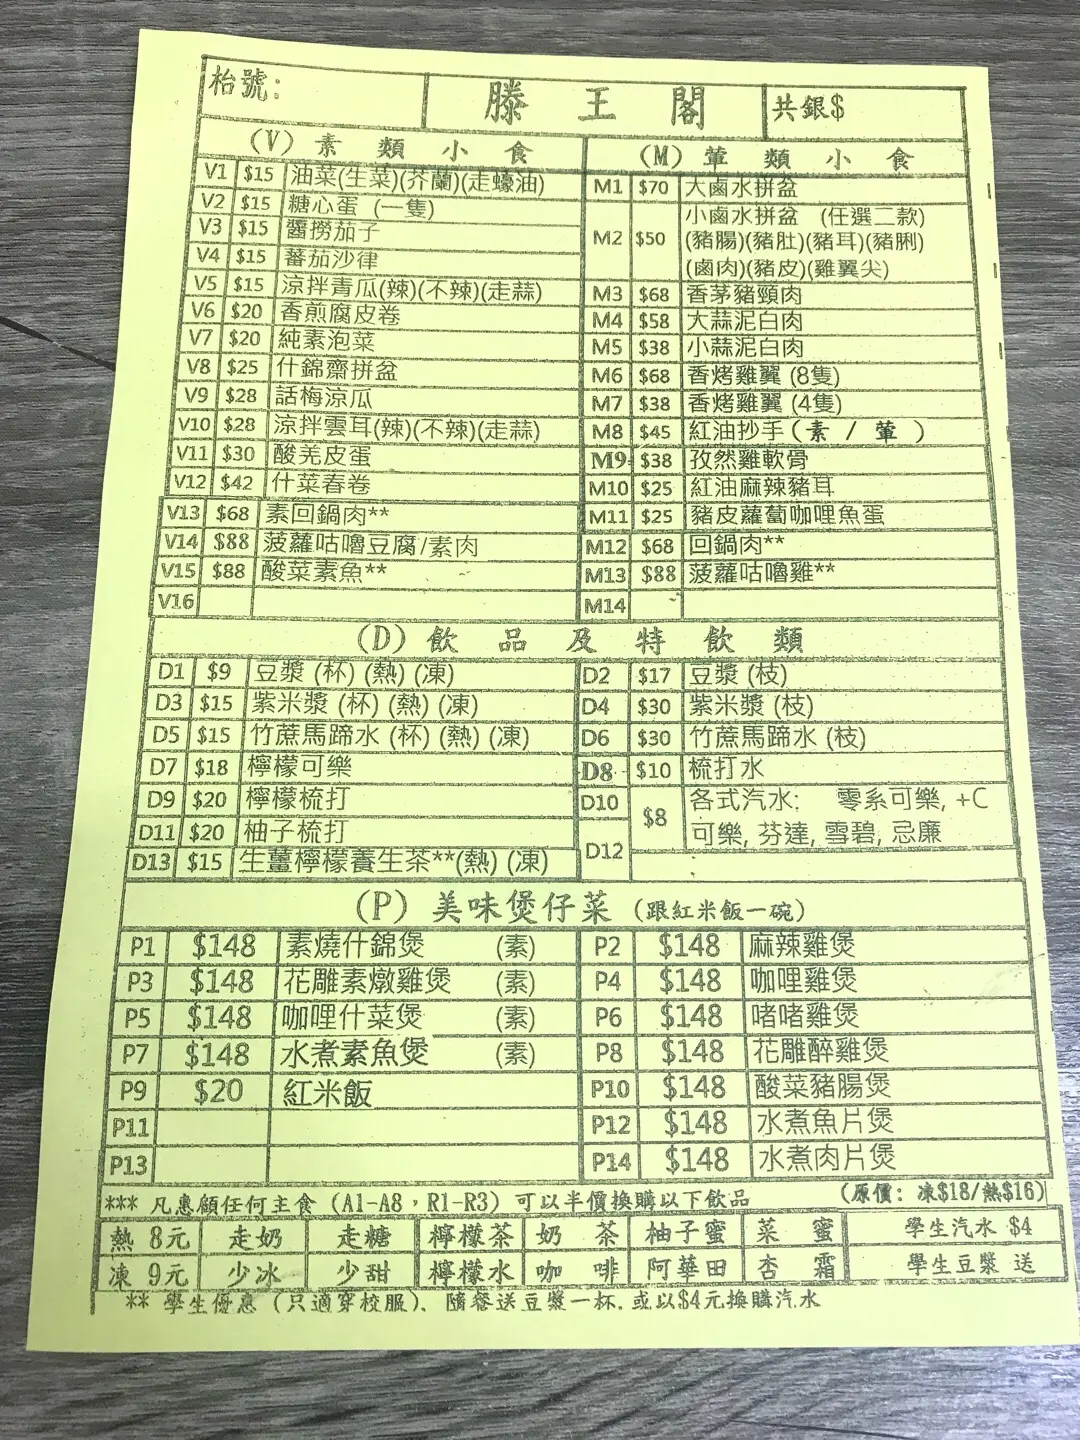 枱號:
滕 王 閣
共銀$
(V) 素 類 小 食
V1 $15 油菜(生菜)(芥蘭)(走蠔油)
V2 $15 糖心蛋 (一隻)
V3 $15 醬撈茄子
V4 $15 蕃茄沙律
V5 $15 涼拌青瓜(辣)(不辣)(走蒜)
V6 $20 香煎腐皮卷
V7 $20 純素泡菜
V8 $25 什錦齋拼盆
V9 $28 話梅涼瓜
V10 $28 涼拌雲耳(辣)(不辣)(走蒜)
V11 $30 酸羌皮蛋
V12 $42 什菜春卷
V13 $68 素回鍋肉**
V14 $88 菠蘿咕嚕豆腐/素肉
V15 $88 酸菜素魚**
V16
(M) 葷 類 小 食
M1 $70 大鹵水拼盆
M2 $50 小鹵水拼盆 (任選二款)
(豬腸)(豬肚)(豬耳)(豬脷)
(鹵肉)(豬皮)(雞翼尖)
M3 $68 香茅豬頸肉
M4 $58 大蒜泥白肉
M5 $38 小蒜泥白肉
M6 $68 香烤雞翼 (8隻)
M7 $38 香烤雞翼 (4隻)
M8 $45 紅油抄手(素 / 葷 )
M9 $38 孜然雞軟骨
M10 $25 紅油麻辣豬耳
M11 $25 豬皮蘿蔔咖哩魚蛋
M12 $68 回鍋肉**
M13 $88 菠蘿咕嚕雞**
M14
(D) 飲 品 及 特 飲 類
D1 $9 豆漿 (杯) (熱) (凍)
D2 $17 豆漿 (枝)
D3 $15 紫米漿 (杯) (熱) (凍)
D4 $30 紫米漿 (枝)
D5 $15 竹蔗馬蹄水 (杯) (熱) (凍)
D6 $30 竹蔗馬蹄水 (枝)
D7 $18 檸檬可樂
D8 $10 梳打水
D9 $20 檸檬梳打
D10 $8 各式汽水: 零系可樂, +C
可樂, 芬達, 雪碧, 忌廉
D11 $20 柚子梳打
D12
D13 $15 生薑檸檬養生茶**(熱) (凍)
(P) 美味煲仔菜 (跟紅米飯一碗)
P1 $148 素燒什錦煲 (素)
P2 $148 麻辣雞煲
P3 $148 花雕素燉雞煲 (素)
P4 $148 咖哩雞煲
P5 $148 咖哩什菜煲 (素)
P6 $148 啫啫雞煲
P7 $148 水煮素魚煲 (素)
P8 $148 花雕醉雞煲
P9 $20 紅米飯
P10 $148 酸菜豬腸煲
P11
P12 $148 水煮魚片煲
P13
P14 $148 水煮肉片煲
*** 凡惠顧任何主食 (A1-A8，R1-R3) 可以半價換購以下飲品 (原價: 凍$18/熱$16)
熱 8元 走奶 走糖 檸檬茶 奶 茶 柚子蜜 菜 蜜 學生汽水 $4
凍 9元 少冰 少甜 檸檬水 咖 啡 阿華田 杏 霜 學生豆漿 送
** 學生優惠 (只適穿校服). 隨餐送豆漿一杯. 或以$4元換購汽水